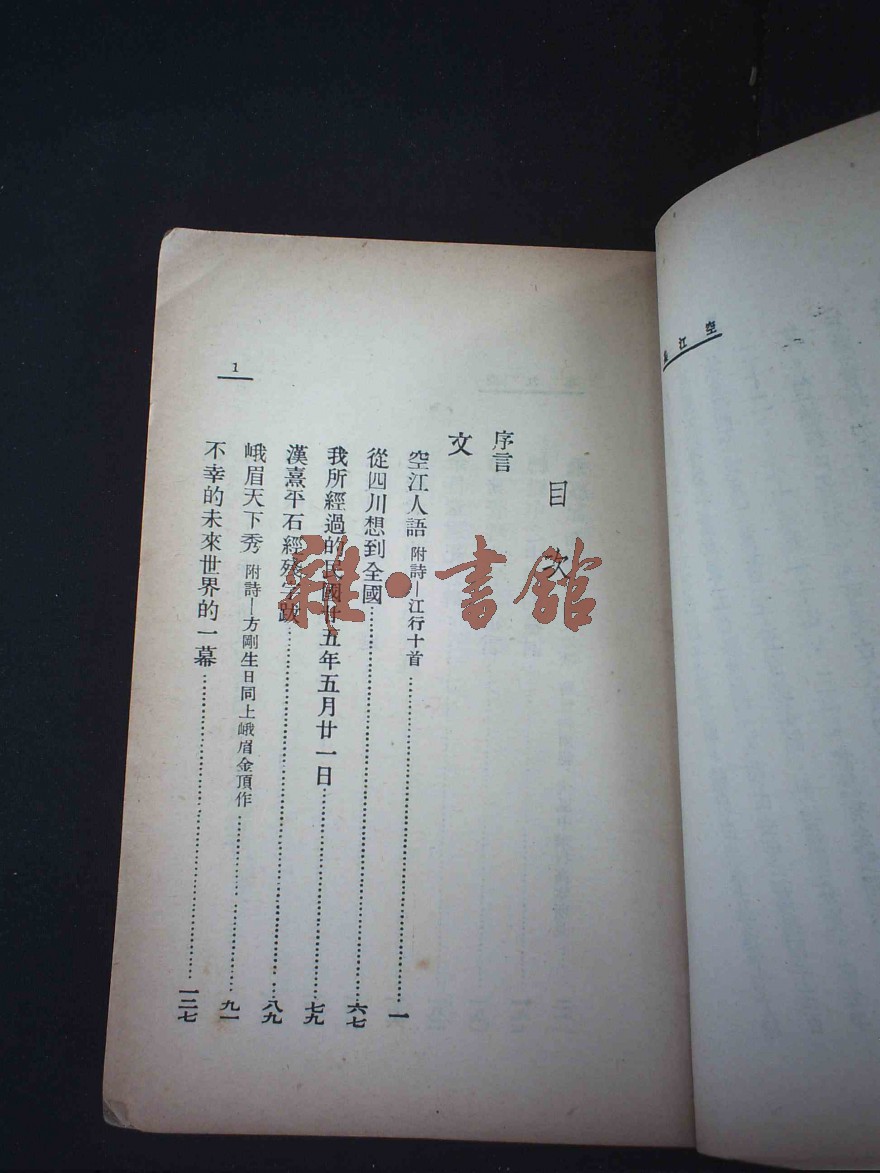 空江
目次
序言
文
空江人語 附詩—江行十首……一
從四川想到全國……六七
我所經過的民國廿五年五月廿一日……七九
漢熹平石經殘字跋……八九
峨眉天下秀 附詩—方剛生日同上峨眉金頂作……九一
不幸的未來世界的一幕……一二七
1
雜·書館